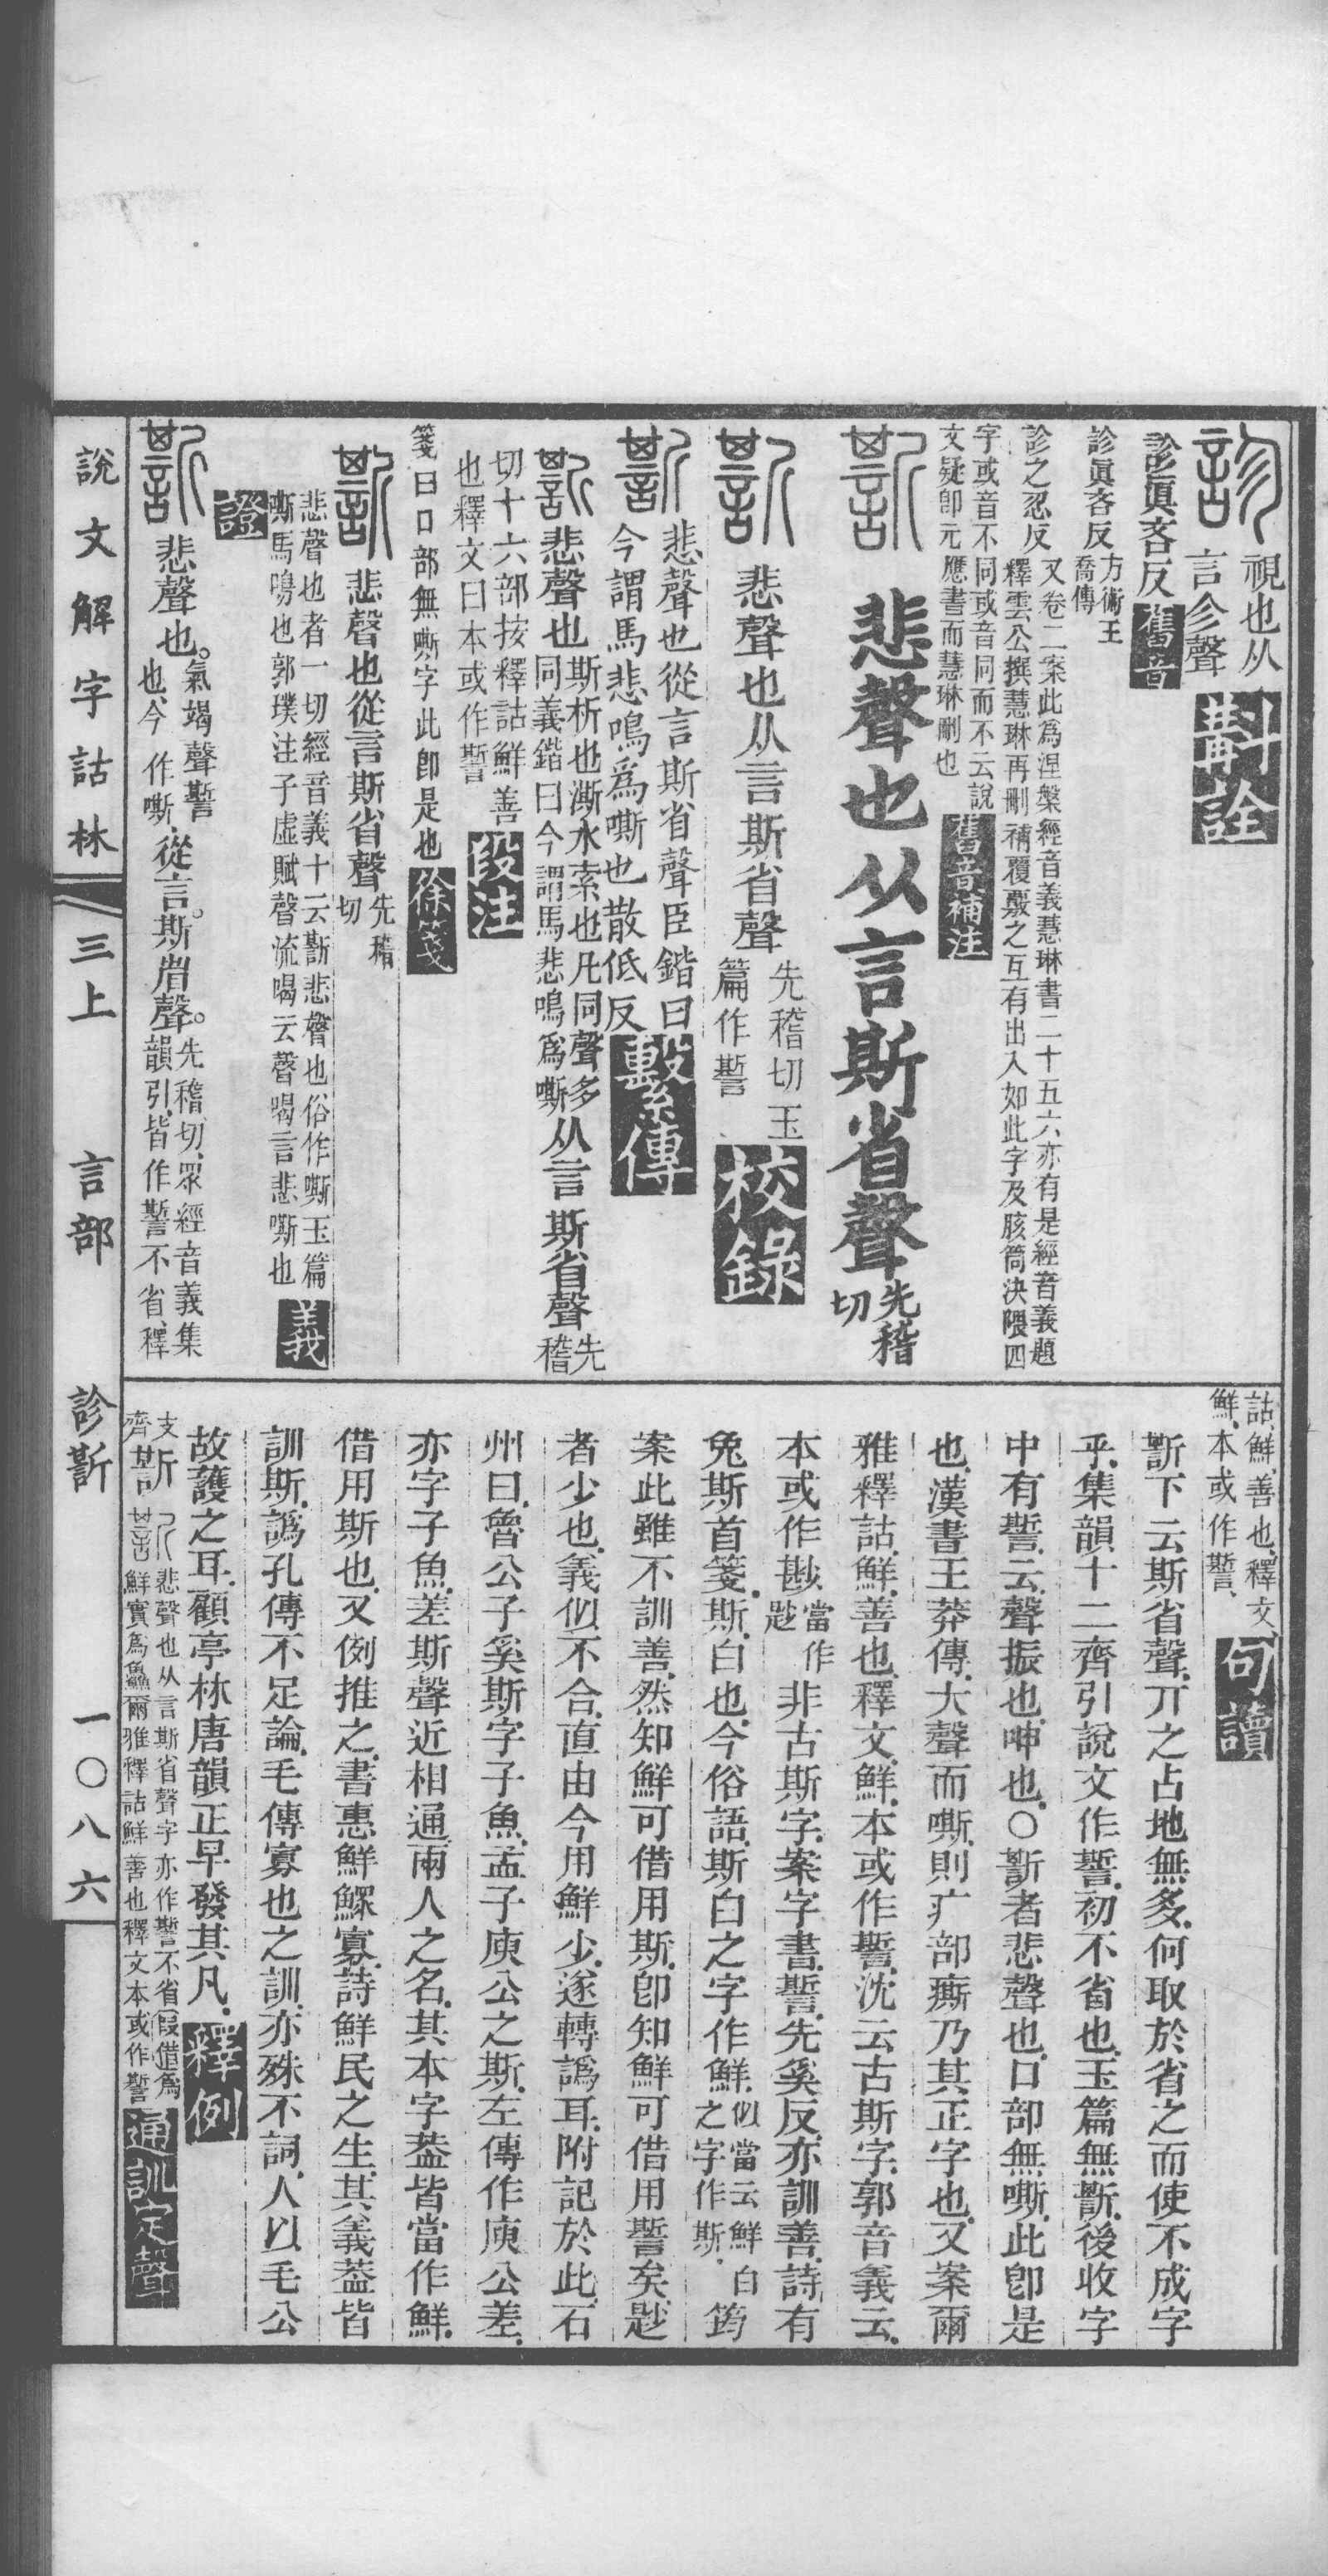 視也从
言㐱聲
斠詮
診眞吝反
舊音
診眞吝反
方術王
喬傳
診之忍反
又卷二案此爲涅槃經音義慧琳書二十五六亦有是經音義題
釋雲公撰慧琳再刪補覆覈之互有出入如此字及胲筒決隈四
字或音不同或音同而不云說
文疑卽元應書而慧琳刪也
舊音補注
悲聲也从言斯省聲
先稽
切
悲聲也从言斯省聲
先稽切玉
篇作謺
校錄
悲聲也從言斯省聲臣鍇曰
今謂馬悲鳴爲嘶也散低反
繫傳
悲聲也
斯析也澌水索也凡同聲多
同義鍇曰今謂馬悲鳴爲嘶
从言斯省聲
先
稽
切十六部按釋詁鮮善
也釋文曰本或作𧫧
段注
箋曰口部無嘶字此卽是也
徐箋
悲聲也從言斯省聲
先稽
切
悲聲也者一切經音義十云𧩿悲聲也俗作嘶玉篇
嘶馬鳴也郭璞注子虛賦聲流喝云聲喝言悲嘶也
義
證
悲聲也。
氣竭聲𧫧
也今作嘶
從言。斯省聲。
先稽切眾經音義集
韻引皆作𧫧不省釋
詁鮮善也釋文
鮮本或作𧫧
句讀
𧩿下云斯省聲丌之占地無多何取於省之而使不成字
乎集韻十二齊引說文作𧫧初不省也玉篇無𧩿後收字
中有𧫧云聲振也呻也○𧩿者悲聲也口部無嘶此卽是
也漢書王莽傳大聲而嘶則疒部㾷乃其正字也又案爾
雅釋詁鮮善也釋文鮮本或作𧫧沈云古斯字郭音義云
本或作尠
當作
尟
非古斯字案字書𧫧先奚反亦訓善詩有
兔斯首箋斯白也今俗語斯白之字作鮮
似當云鮮白
之字作斯
筠
案此雖不訓善然知鮮可借用斯卽知鮮可借用𧫧矣尟
者少也義似不合直由今用鮮少遂轉譌耳附記於此石
州曰魯公子奚斯字子魚孟子庾公之斯左傳作庾公差
亦字子魚差斯聲近相通兩人之名其本字葢皆當作鮮
借用斯也又例推之書惠鮮鰥寡詩鮮民之生其義葢皆
訓斯譌孔傳不足論毛傳寡也之訓亦殊不詞人以毛公
故護之耳顧亭林唐韻正早發其凡
釋例
支
齊
𧩿
悲聲也从言斯省聲字亦作𧫧不省假借爲
鮮實爲鱻爾雅釋詁鮮善也釋文本或作𧫧
通訓定聲
說文解字詁林 三上 言部 診𧩿 一〇八六